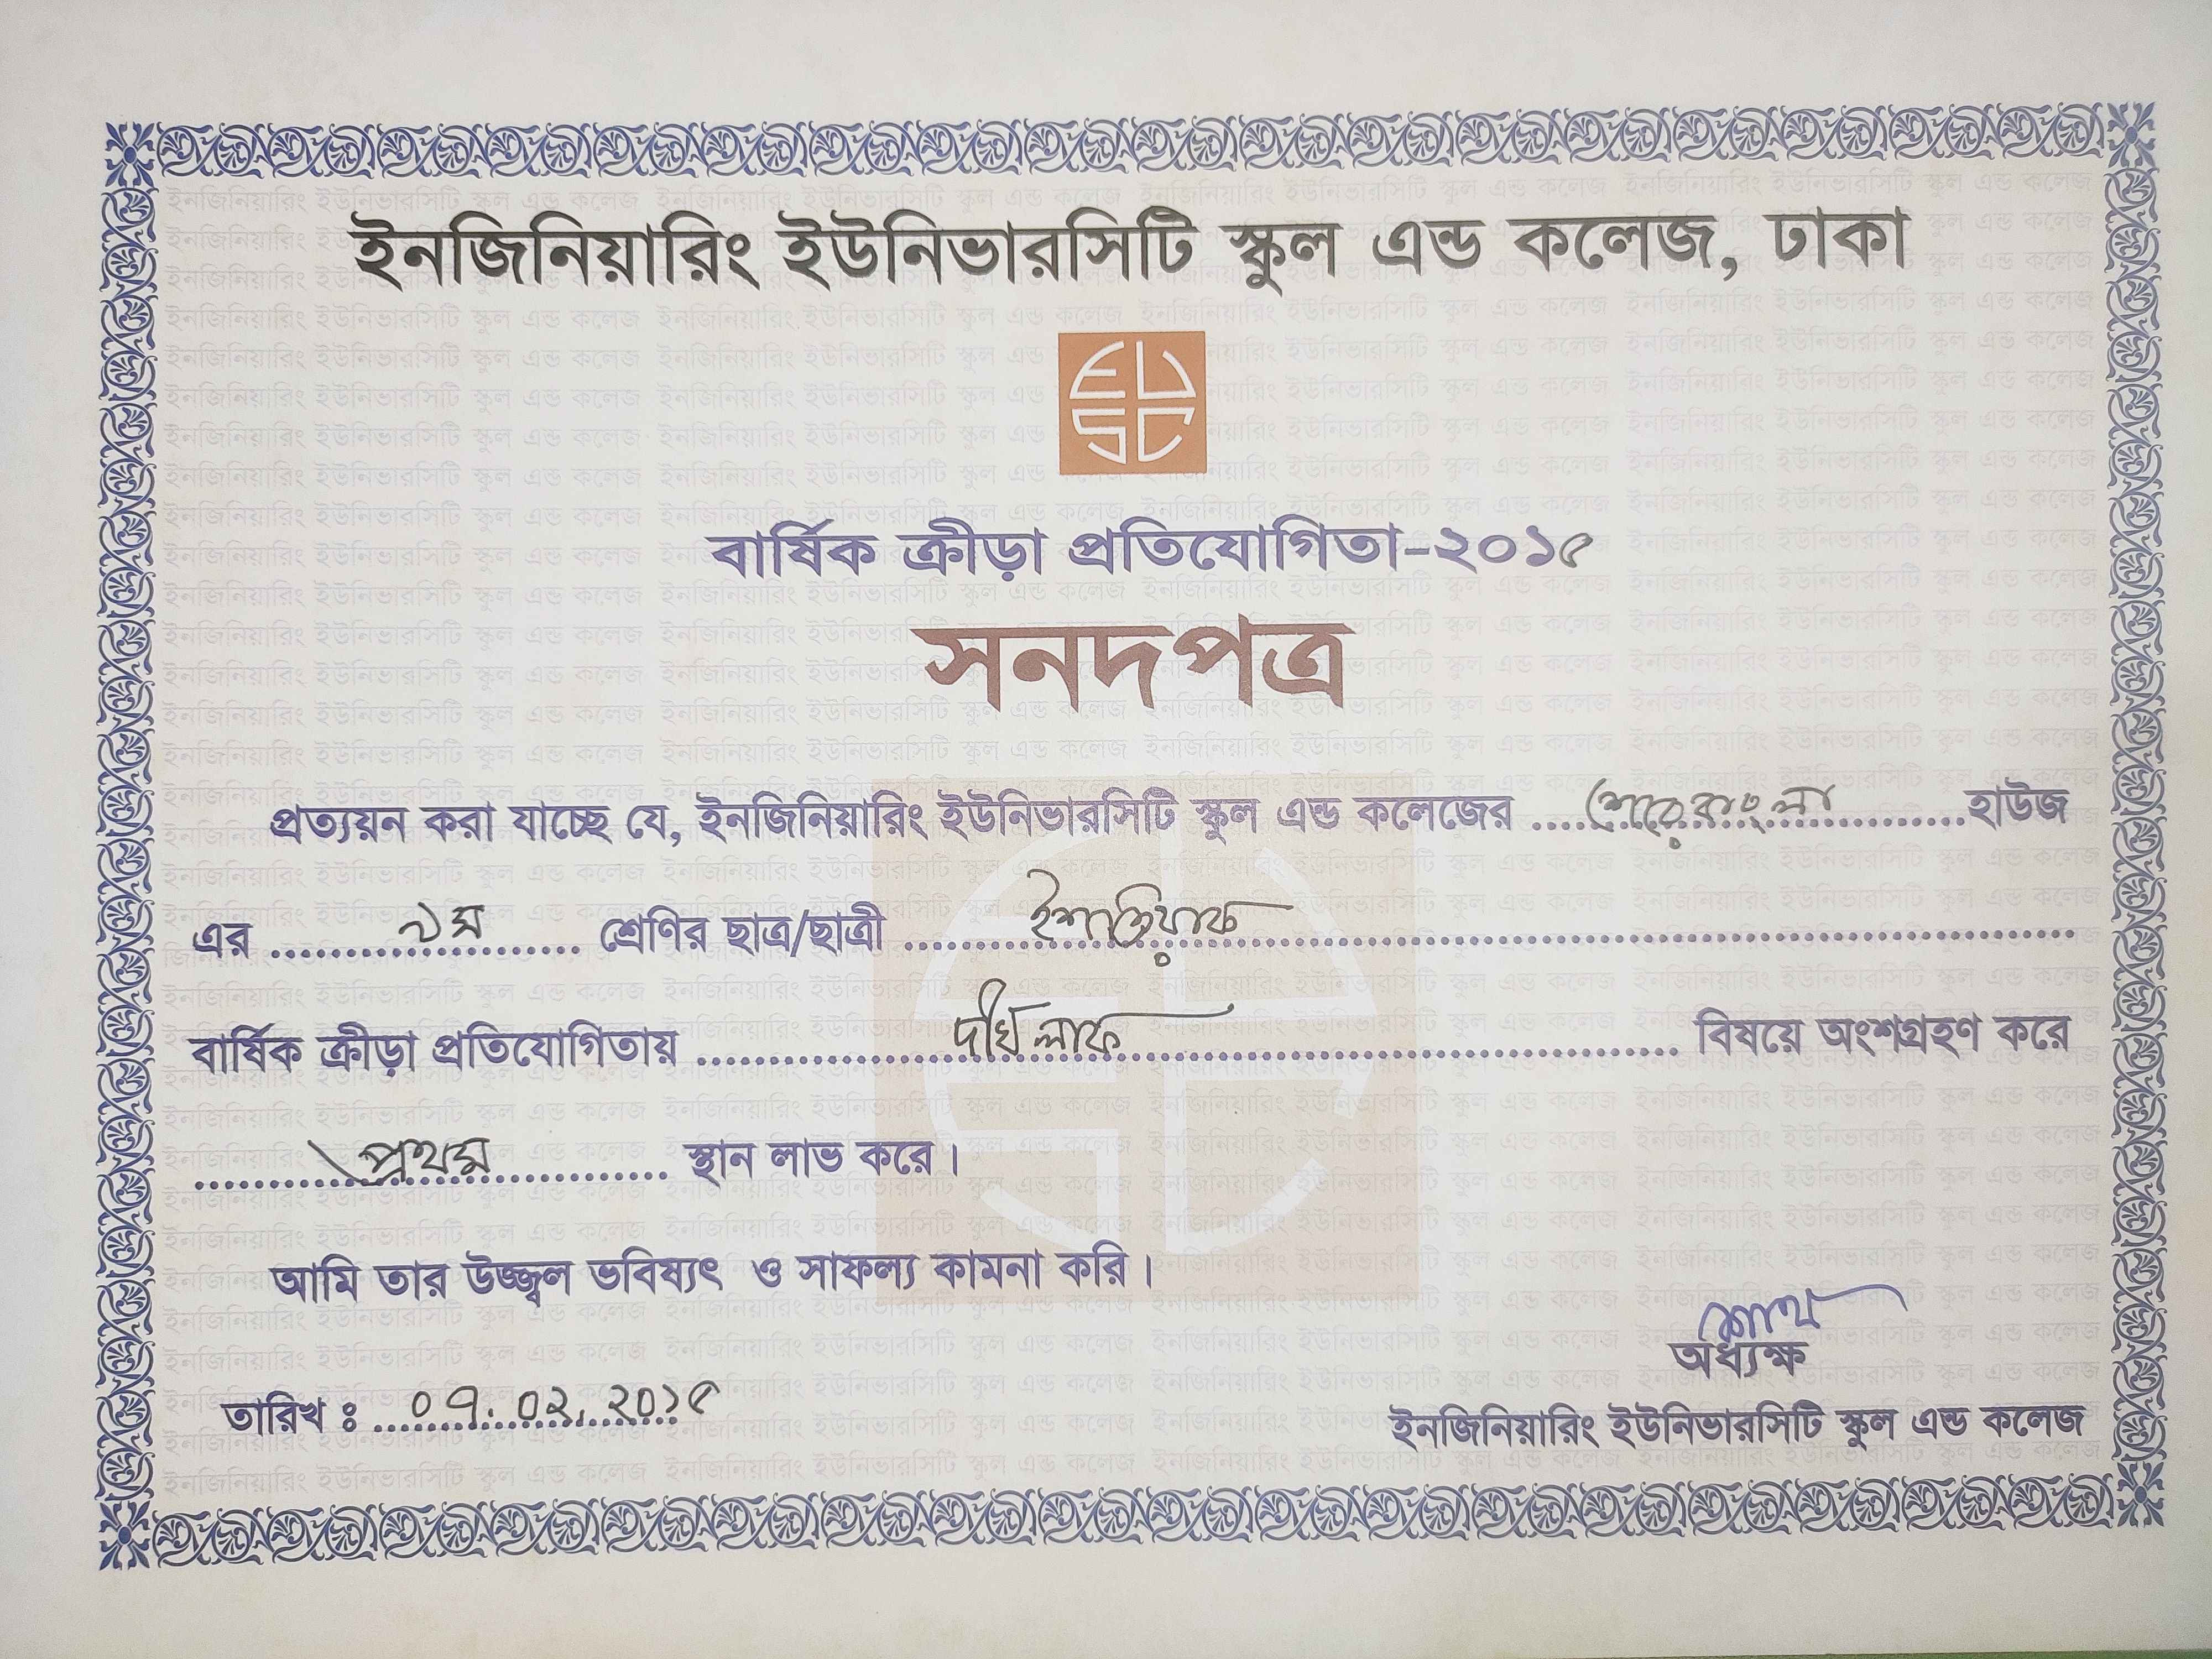 ইনজিনিয়ারিং ইউনিভারসিটি স্কুল এন্ড কলেজ, ঢাকা
EUSC
বার্ষিক ক্রীড়া প্রতিযোগিতা-২০১৫
সনদপত্র
প্রত্যয়ন করা যাচ্ছে যে, ইনজিনিয়ারিং ইউনিভারসিটি স্কুল এন্ড কলেজের শেরেবাংলা হাউজ
এর ৯ম শ্রেণির ছাত্র/ছাত্রী ইশতিয়াক
বার্ষিক ক্রীড়া প্রতিযোগিতায় দীর্ঘ লাফ বিষয়ে অংশগ্রহণ করে
প্রথম স্থান লাভ করে।
আমি তার উজ্জ্বল ভবিষ্যৎ ও সাফল্য কামনা করি।
অধ্যক্ষ
তারিখ ঃ ০৭.০২.২০১৫
ইনজিনিয়ারিং ইউনিভারসিটি স্কুল এন্ড কলেজ